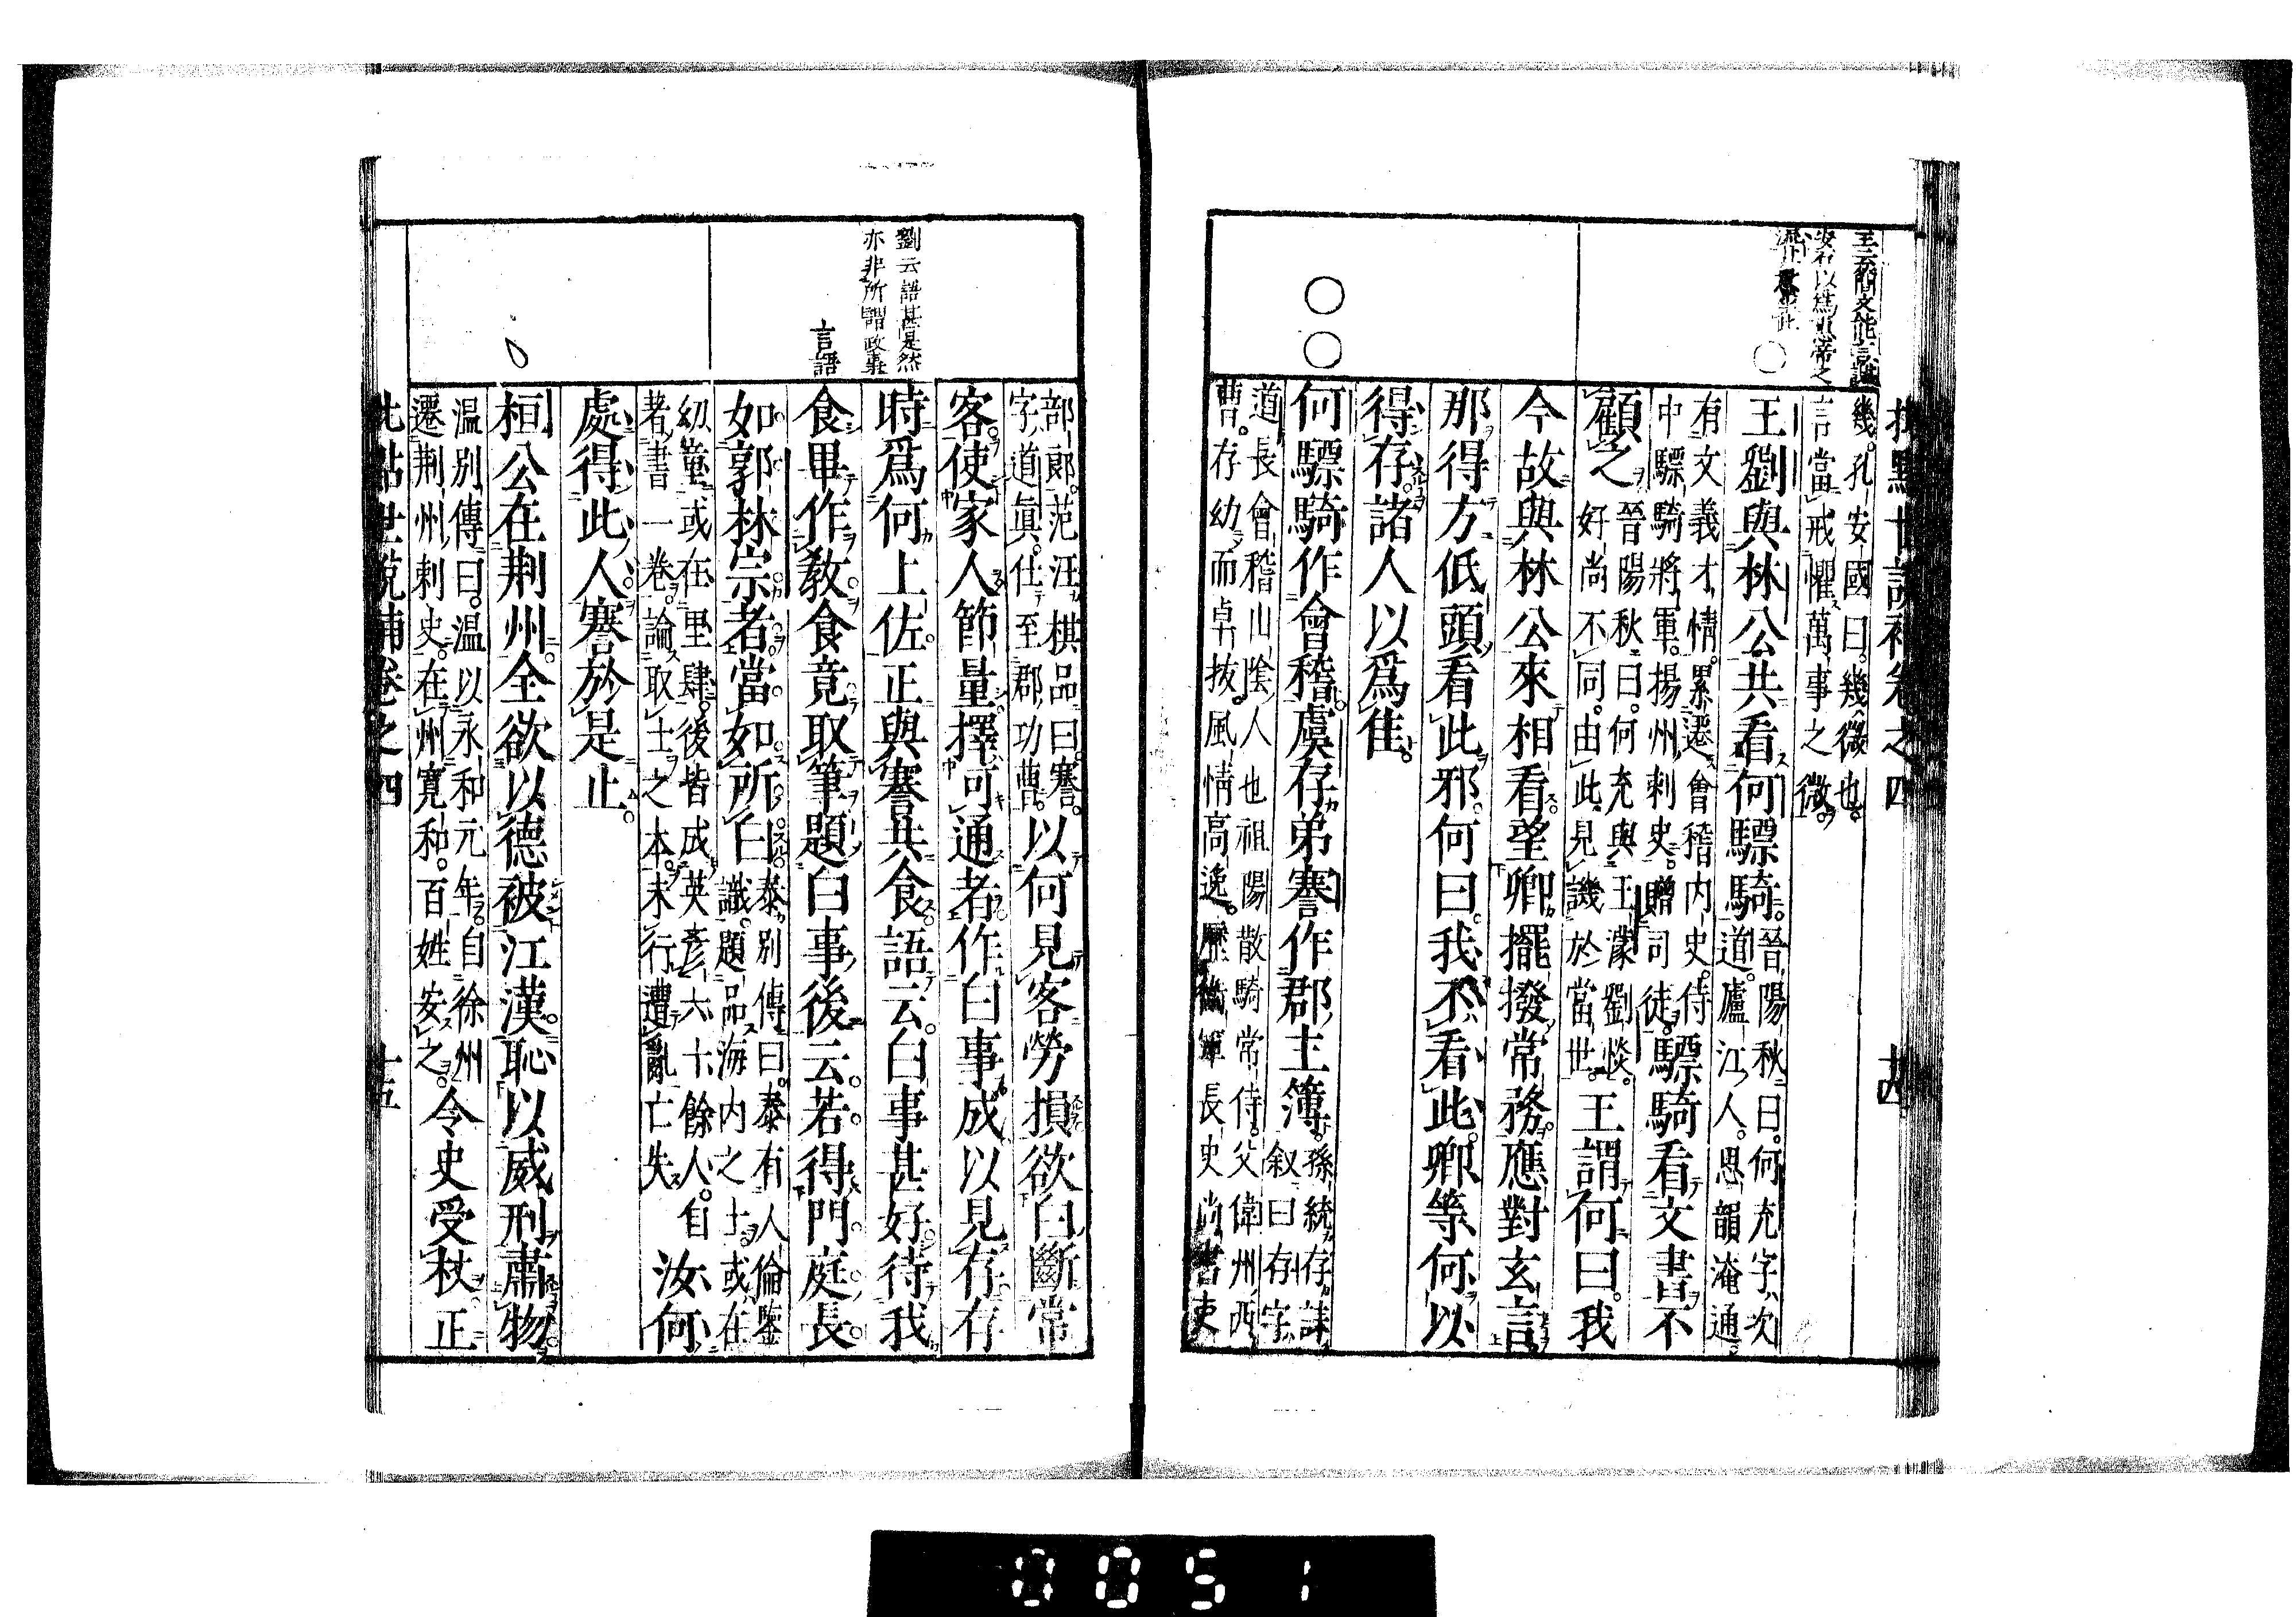 幾孔安國曰幾微也
言當戒懼萬事之微
王劉與林公共看何驃騎晉陽秋曰何充字次
道廬江人思韻淹通
有文義才情累遷會稽內史侍
中驃騎將軍揚州刺史贈司徒驃騎看文書不
顧之晉陽秋曰何充與王濛劉惔
好尚不同由此見譏於當世王謂何曰我
今故與林公來相看望卿擺撥常務應對玄言
那得方低頭看此邪何曰我不看此卿等何以
得存諸人以爲隹
何驃騎作會稽虞存弟謇作郡主簿孫統存誄
叙曰存字
道長會稽山陰人也祖陽散騎常侍父偉州西
曹存幼而卓拔風情高逸歷衞軍長史尚書吏
十四
部郎范汪棋品曰謇
字道眞仕至郡功曹以何見客勞損欲白斷常
客使家人節量擇可通者作白事成以見存存
時爲何上佐正與謇共食語云白事甚好待我
食畢作敎食竟取筆題白事後云若得門庭長
如郭林宗者當如所白泰別傳曰泰有人倫鑒
識題品海內之士或在
幼童或在里肆後皆成英彥六十餘人自
著書一卷論取士之本未行遭亂亡失汝何
處得此人謇於是止
桓公在荆州全欲以德被江漢恥以威刑肅物
温別傳曰温以永和元年自徐州
遷荆州刺史在州寬和百姓安之令史受杖正
世說補卷之四
十五
劉云語甚是然
亦非所謂政事
言語
0051